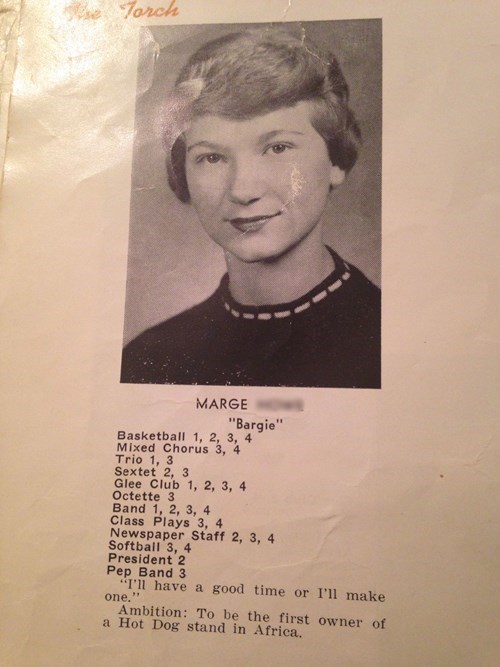 The Torch
MARGE
"Bargie"
Basketball 1, 2, 3, 4
Mixed Chorus 3, 4
Trio 1, 3
Sextet 2, 3
Glee Club 1, 2, 3, 4
Octette 3
Band 1, 2, 3, 4
Class Plays 3, 4
Newspaper Staff 2, 3, 4
Softball 3, 4
President 2
Pep Band 3
"I'll have a good time or I'll make
one."
Ambition: To be the first owner of
a Hot Dog stand in Africa.